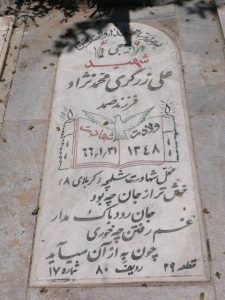 شهید
علی زرگری محمدنژاد
فرزند صمد
ولادت شهادت
۱۳۴۸ ۶۶/۱/۳۱
محل شهادت شلمچه (کربلای ۸)
خوش تر از جان چه بود
جان رود باک مدار
غم رفتن چه خوری
چون به از آن می آید
قطعه ۲۹ ردیف ۸۰ شماره ۱۷